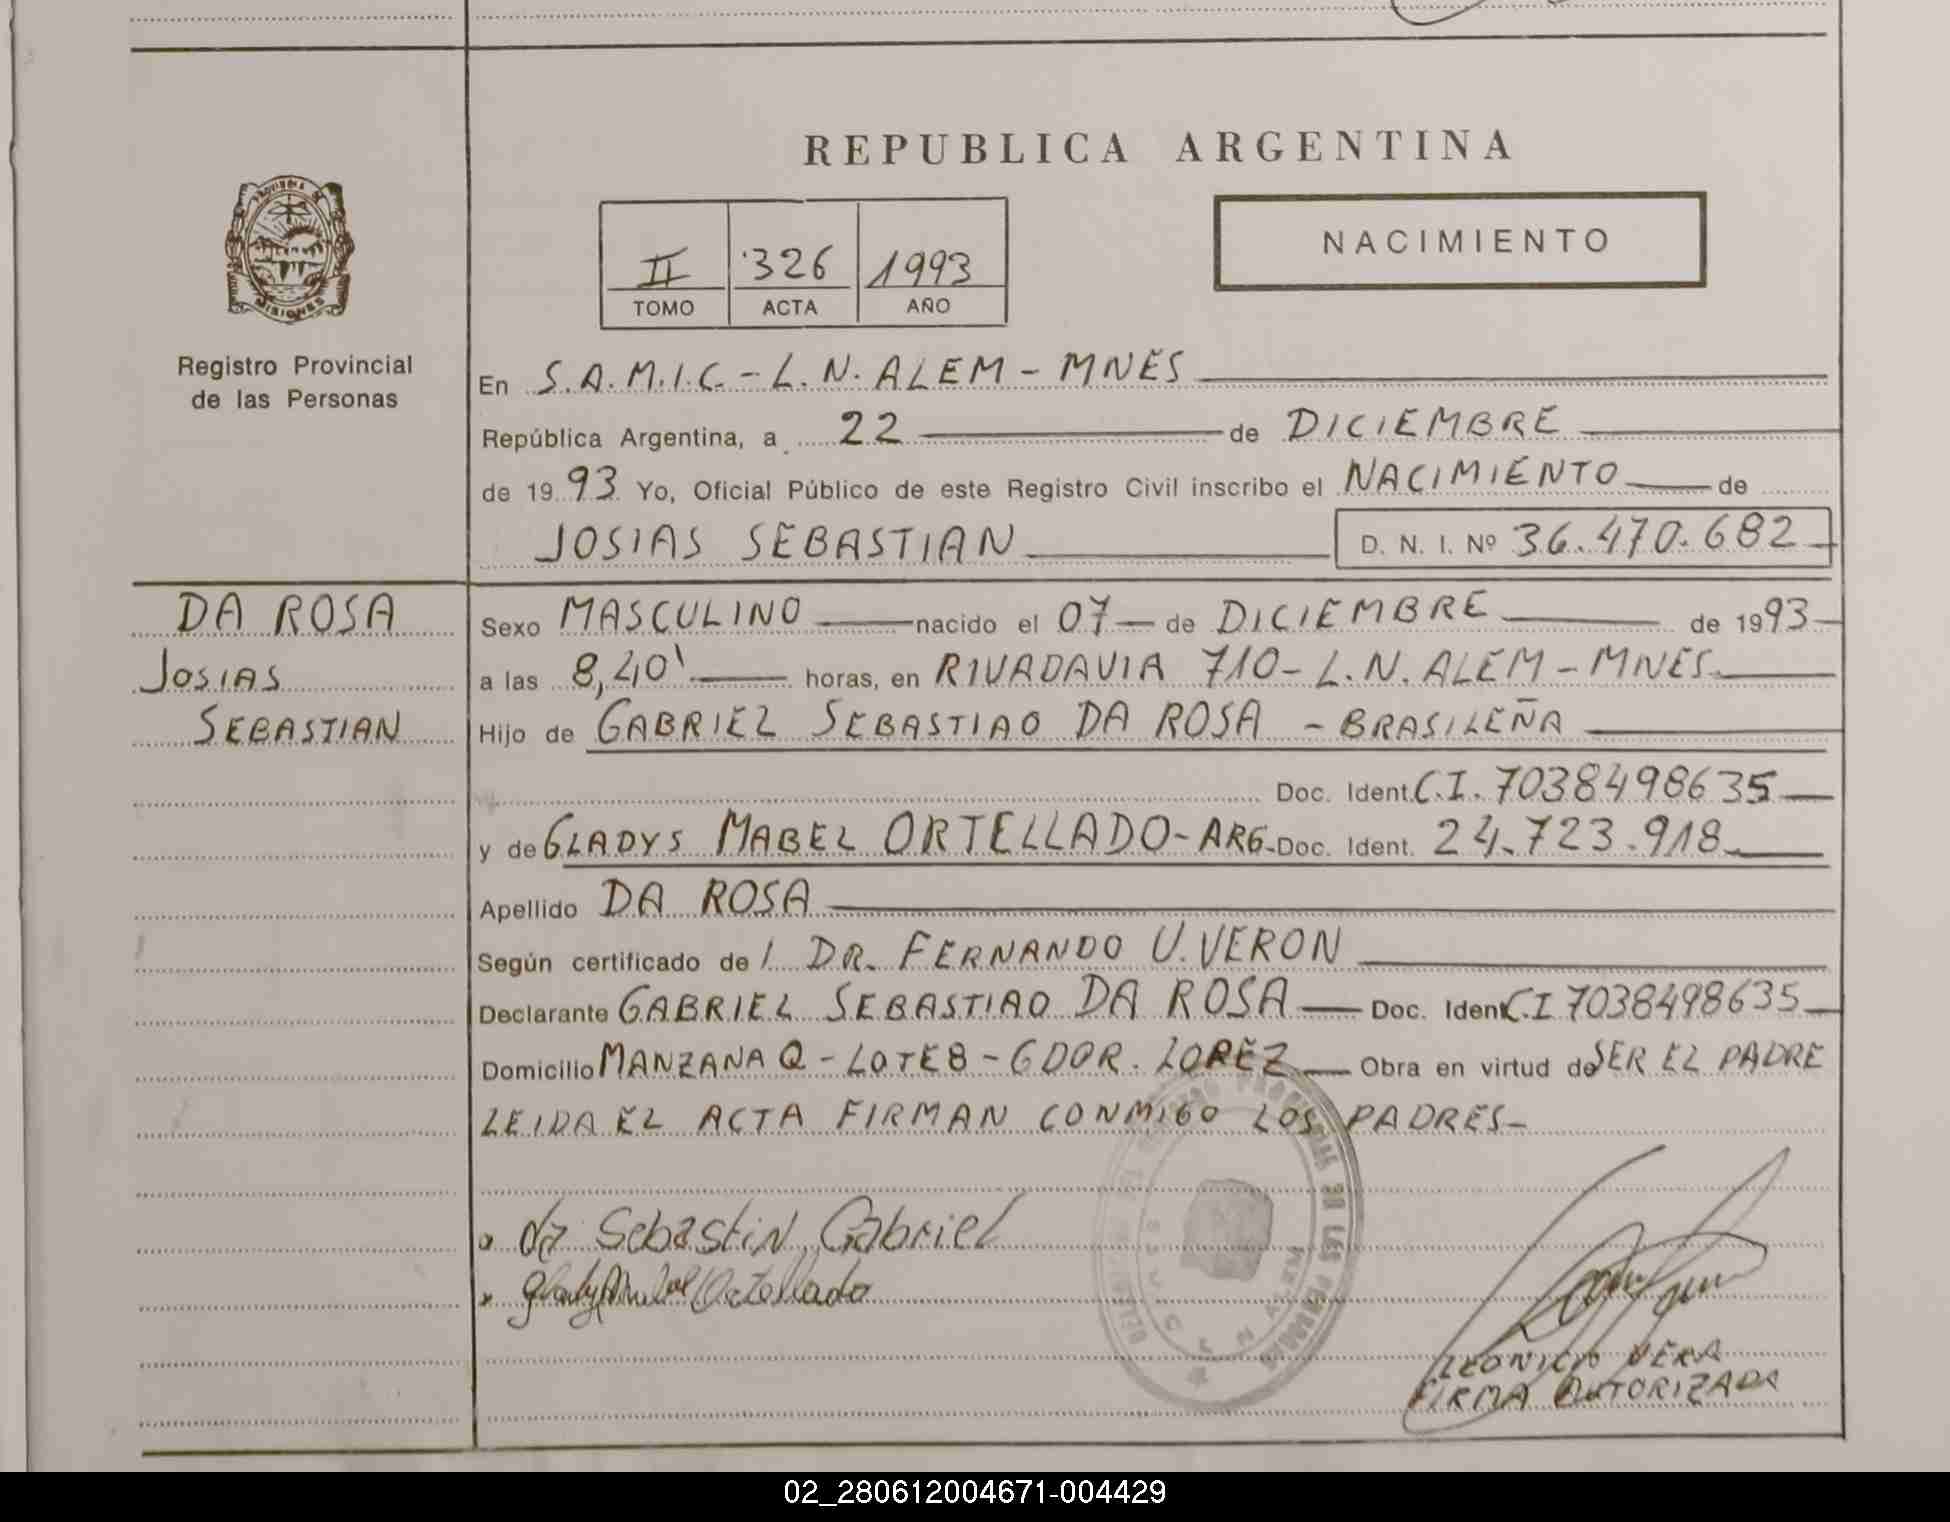 REPUBLICA ARGENTINA
NACIMIENTO
II 326 1993
TOMO ACTA AÑO
PROVINCIA DE
MISIONES
Registro Provincial
de las Personas
En S.A.M.I.C. - L.N. ALEM - MNES
República Argentina, a 22 de DICIEMBRE
de 1993 Yo, Oficial Público de este Registro Civil inscribo el NACIMIENTO de
JOSIAS SEBASTIAN D. N. I. Nº 36.470.682
DA ROSA
JOSIAS
SEBASTIAN
Sexo MASCULINO nacido el 07 de DICIEMBRE de 1993
a las 8,40' horas, en RIVADAVIA 710 - L.N. ALEM - MNES
Hijo de GABRIEL SEBASTIAO DA ROSA - BRASILEÑA
Doc. Ident. C.I. 7038498635
y de GLADYS MABEL ORTELLADO - ARG. Doc. Ident. 24.723.918
Apellido DA ROSA
Según certificado de l DR. FERNANDO U. VERON
Declarante GABRIEL SEBASTIAO DA ROSA Doc. Ident C.I 7038498635
Domicilio MANZANA Q - LOTE 8 - GDOR. LOPEZ Obra en virtud de SER EL PADRE
LEIDA EL ACTA FIRMAN CONMIGO LOS PADRES -
da Sebastin Gabriel
Ortellado
DE LAS PERSONAS
LEONICIO VERA
FIRMA AUTORIZADA
02_280612004671-004429